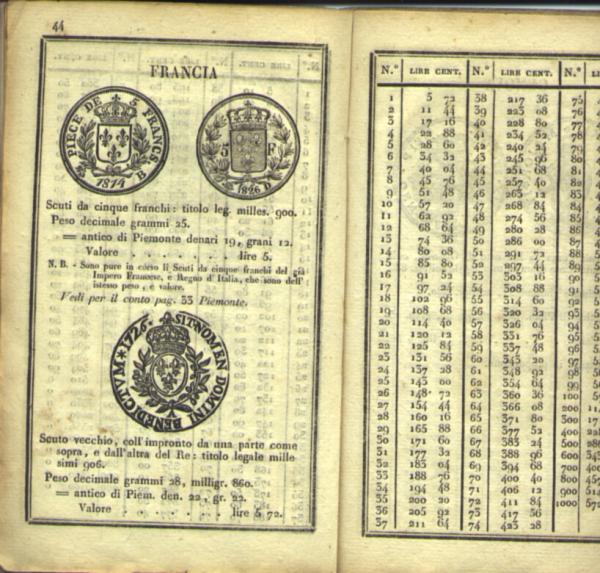 44
FRANCIA
PIECE DE 5 FRANCS
1814 B
5 F
1826 D
Scuti da cinque franchi: titolo leg. milles. 900.
Peso decimale grammi 25.
= antico di Piemonte denari 19, grani 12.
Valore . . . . . . . . . lire 5.
N. B. - Sono pure in corso li Scuti da cinque franchi del già
Impero Francese, e Regno d'Italia, che sono dell'
istesso peso, e valore.
Vedi per il conto pag. 33 Piemonte.
1726. SIT NOMEN DOMINI BENEDICTVM
Scuto vecchio, coll'impronto da una parte come
sopra, e dall'altra del Re: titolo legale mille
simi 906.
Peso decimale grammi 28, milligr. 860.
= antico di Piem. den. 22, gr. 22.
Valore . . . . . . . lire 5 72.
N.° LIRE CENT. N.° LIRE CENT. N.° LI
1 5 72 38 217 36 75
2 11 44 39 223 08 76
3 17 16 40 228 80 77
4 22 88 41 234 52 78
5 28 60 42 240 24 79
6 34 32 43 245 96 80
7 40 04 44 251 68 81
8 45 76 45 257 40 82
9 51 48 46 263 12 83
10 57 20 47 268 84 84
11 62 92 48 274 56 85
12 68 64 49 280 28 86
13 74 36 50 286 00 87
14 80 08 51 291 72 88
15 85 80 52 297 44 89
16 91 52 53 303 16 90
17 97 24 54 308 88 91
18 102 96 55 314 60 92
19 108 68 56 320 32 93
20 114 40 57 326 04 94
21 120 12 58 331 76 95
22 125 84 59 337 48 96
23 131 56 60 343 20 97
24 137 28 61 348 92 98
25 143 00 62 354 64 99
26 148 72 63 360 36 100
27 154 44 64 366 08 200
28 160 16 65 371 80 300
29 165 88 66 377 52 400
30 171 60 67 383 24 500
31 177 32 68 388 96 600
32 183 04 69 394 68 700
33 188 76 70 400 40 800
34 194 48 71 406 12 900
35 200 20 72 411 84 1000
36 205 92 73 417 56
37 211 64 74 423 28